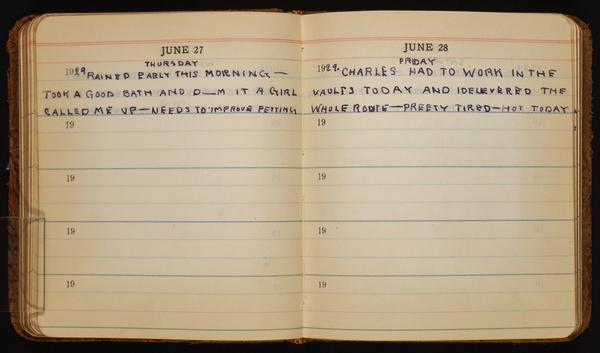 JUNE 27
THURSDAY
1929. RAINED EARLY THIS MORNING—
TOOK A GOOD BATH AND D—M IT A GIRL
CALLED ME UP—NEEDS TO IMPROVE PETTING
19
19
19
19
JUNE 28
FRIDAY
1929. CHARLES HAD TO WORK IN THE
VAULTS TODAY AND I DELEVERED THE
WHOLE ROUTE—PREETY TIRED—HOT TODAY
19
19
19
19